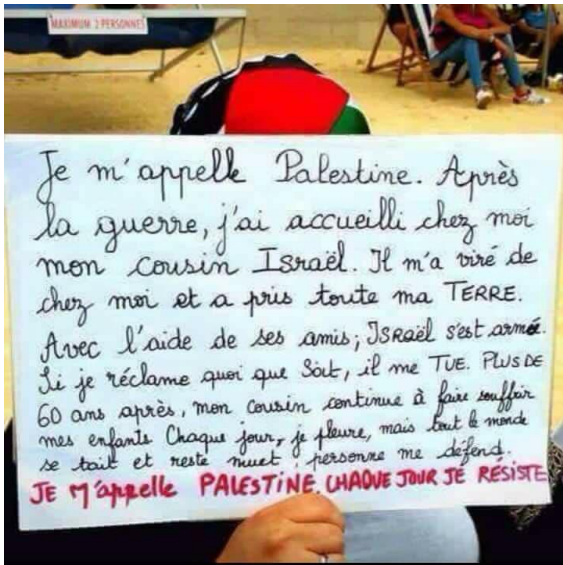 MAXIMUM 2 PERSONNES
Je m'appelle Palestine. Après
la guerre, j'ai accueilli chez moi
mon cousin Israël. Il m'a viré de
chez moi et a pris toute ma TERRE.
Avec l'aide de ses amis; ISRaël s'est armée.
Si je réclame quoi que Soit, il me TUE. PLUS DE
60 ans après, mon cousin continue à faire souffrir
mes enfants Chaque jour, je pleure, mais tout le monde
se tait et reste muet, personne me défend.
JE M'appelle PALESTINE. CHAQUE JOUR JE RÉSISTE